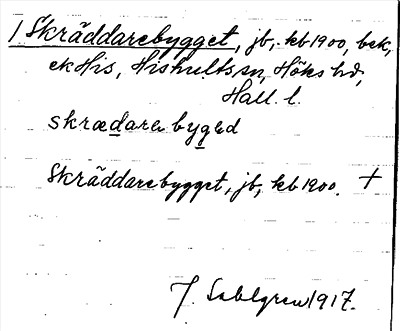 1 Skräddarebygget, jb, kb 1900, bek,
ek His, Hishults sn, Höks hd,
Hall. l.
skrædarebygəd
Skräddarebygget, jb, kb 1900. +
J. Sahlgren 1917.